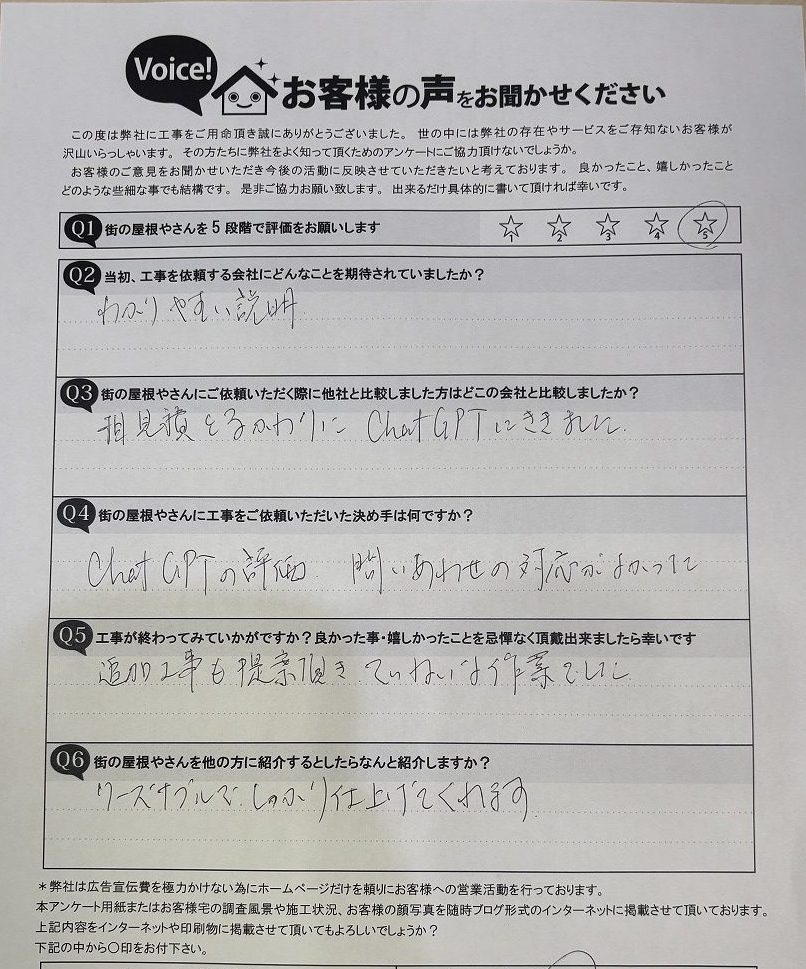 Voice!
お客様の声をお聞かせください
この度は弊社に工事をご用命頂き誠にありがとうございました。 世の中には弊社の存在やサービスをご存知ないお客様が
沢山いらっしゃいます。 その方たちに弊社をよく知って頂くためのアンケートにご協力頂けないでしょうか。
お客様のご意見をお聞かせいただき今後の活動に反映させていただきたいと考えております。 良かったこと、嬉しかったこと
どのような些細な事でも結構です。 是非ご協力お願い致します。 出来るだけ具体的に書いて頂ければ幸いです。
Q1 街の屋根やさんを5段階で評価をお願いします 1 2 3 4 5
Q2 当初、工事を依頼する会社にどんなことを期待されていましたか？
わかりやすい説明
Q3 街の屋根やさんにご依頼いただく際に他社と比較しました方はどこの会社と比較しましたか？
相見積とるかわりに ChatGPTにききました.
Q4 街の屋根やさんに工事をご依頼いただいた決め手は何ですか？
ChatGPTの評価. 問いあわせの対応がよかった
Q5 工事が終わってみていかがですか？良かった事・嬉しかったことを忌憚なく頂戴出来ましたら幸いです
追加工事も提案頂き ていねいな作業でした
Q6 街の屋根やさんを他の方に紹介するとしたらなんと紹介しますか？
リーズナブルで しっかり仕上げてくれます.
＊弊社は広告宣伝費を極力かけない為にホームページだけを頼りにお客様への営業活動を行っております。
本アンケート用紙またはお客様宅の調査風景や施工状況、お客様の顔写真を随時ブログ形式のインターネットに掲載させて頂いております。
上記内容をインターネットや印刷物に掲載させて頂いてもよろしいでしょうか？
下記の中から〇印をお付下さい。